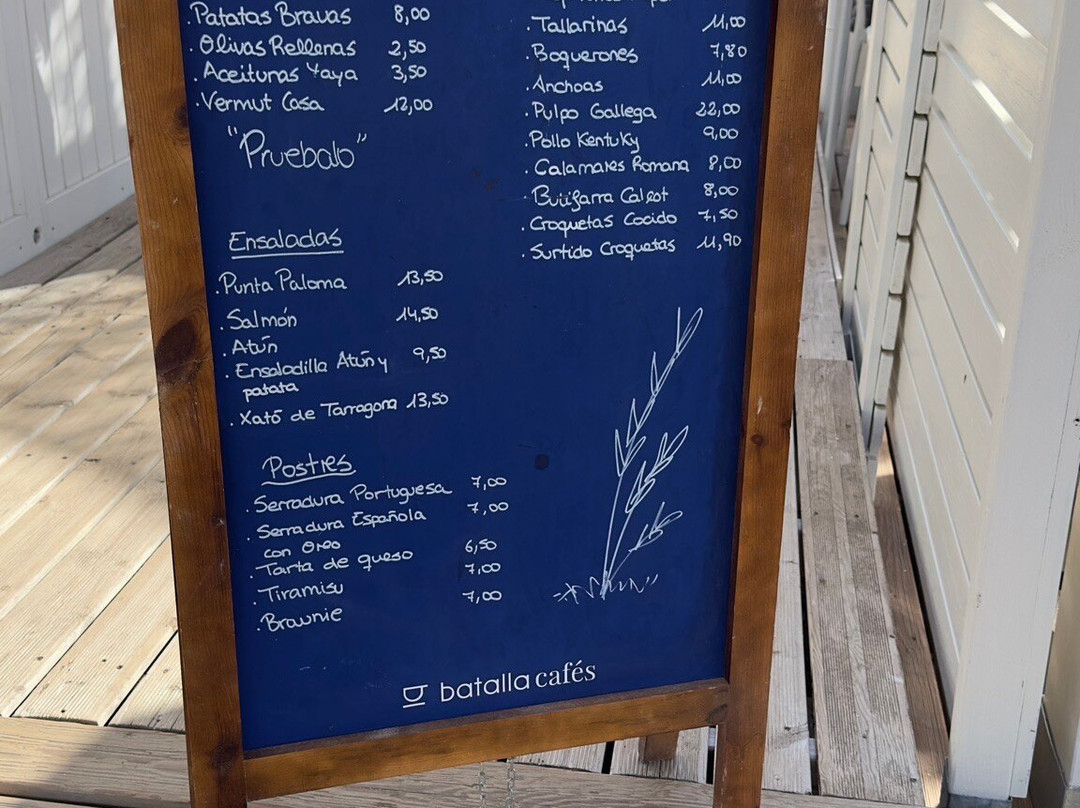 .Patatas Bravas 8,00
.Olivas Rellenas 2,50
.Aceitunas Yaya 3,50
.Vermut Casa 12,00
"Pruebalo"
Ensaladas
.Punta Paloma 13,50
.Salmón 14,50
.Atún
.Ensaladilla Atún y 9,50
patata
.Xató de Tarragona 13,50
Postres
.Serradura Portuguesa 7,00
.Serradura Española 7,00
con Oreo
.Tarta de queso 6,50
.Tiramisu 7,00
.Brownie 7,00
.Tallarinas 11,00
.Boquerones 7,80
.Anchoas 11,00
.Pulpo Gallega 22,00
.Pollo Kentuky 9,00
.Calamares Romana 8,00
.Butifarra Calçot 8,00
.Croquetas Cocido 7,50
.Surtido Croquetas 11,90
batalla cafés